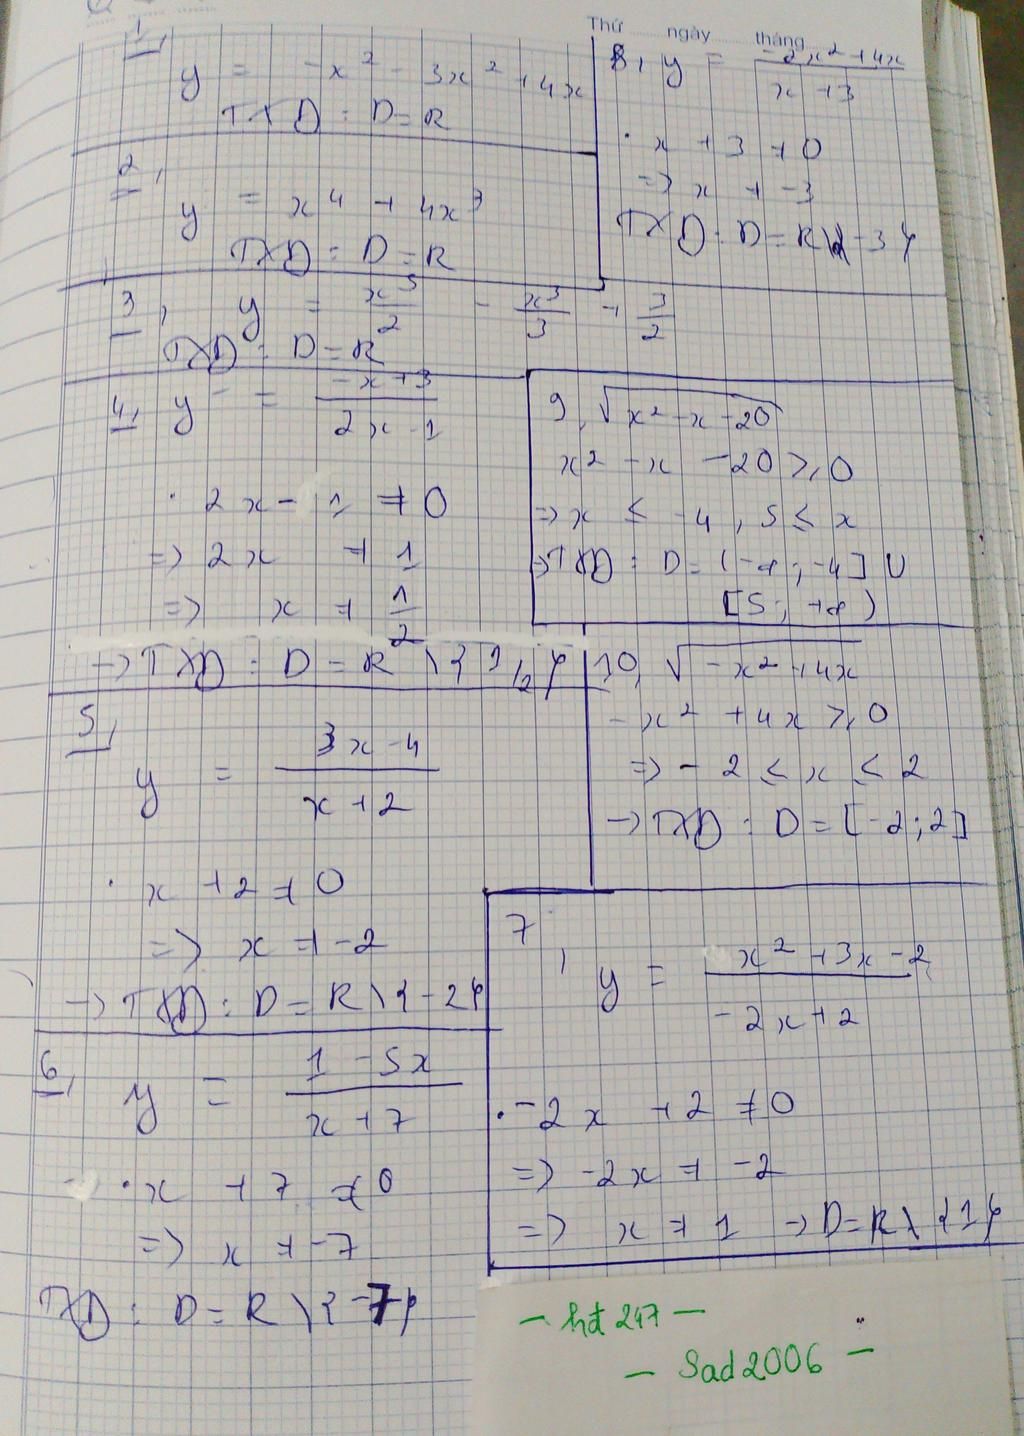 Thứ ngày tháng
1, y = -x² - 3x² + 4x
TXD : D = R
2, y = x⁴ + 4x³
TXD : D = R
3, y = x⁵/2 - x³/3 + 3/2
TXD : D = R
4, y = (-x+3)/(2x-1)
. 2x - 1 ≠ 0
=> 2x ≠ 1
=> x ≠ 1/2
-> TXD : D = R \ {1/2}
5, y = (3x-4)/(x+2)
. x + 2 ≠ 0
=> x ≠ -2
-> TXD : D = R \ {-2}
6, y = (1-5x)/(x+7)
. x + 7 ≠ 0
=> x ≠ -7
TXD : D = R \ {-7}
8, y = (-2x²+4x)/(x+3)
. x + 3 ≠ 0
=> x ≠ -3
TXD : D = R \ {-3}
9, √(x²-x-20)
x² - x - 20 ≥ 0
=> x ≤ -4, 5 ≤ x
-> TXD : D = (-∞; -4] U
[5; +∞)
10, √(-x²+4x)
-x² + 4x ≥ 0
=> -2 ≤ x ≤ 2
-> TXD : D = [-2; 2]
7, y = (x²+3x-2)/(-2x+2)
. -2x + 2 ≠ 0
=> -2x ≠ -2
=> x ≠ 1 -> D = R \ {1}
- hđ 247 -
- Sad2006 -